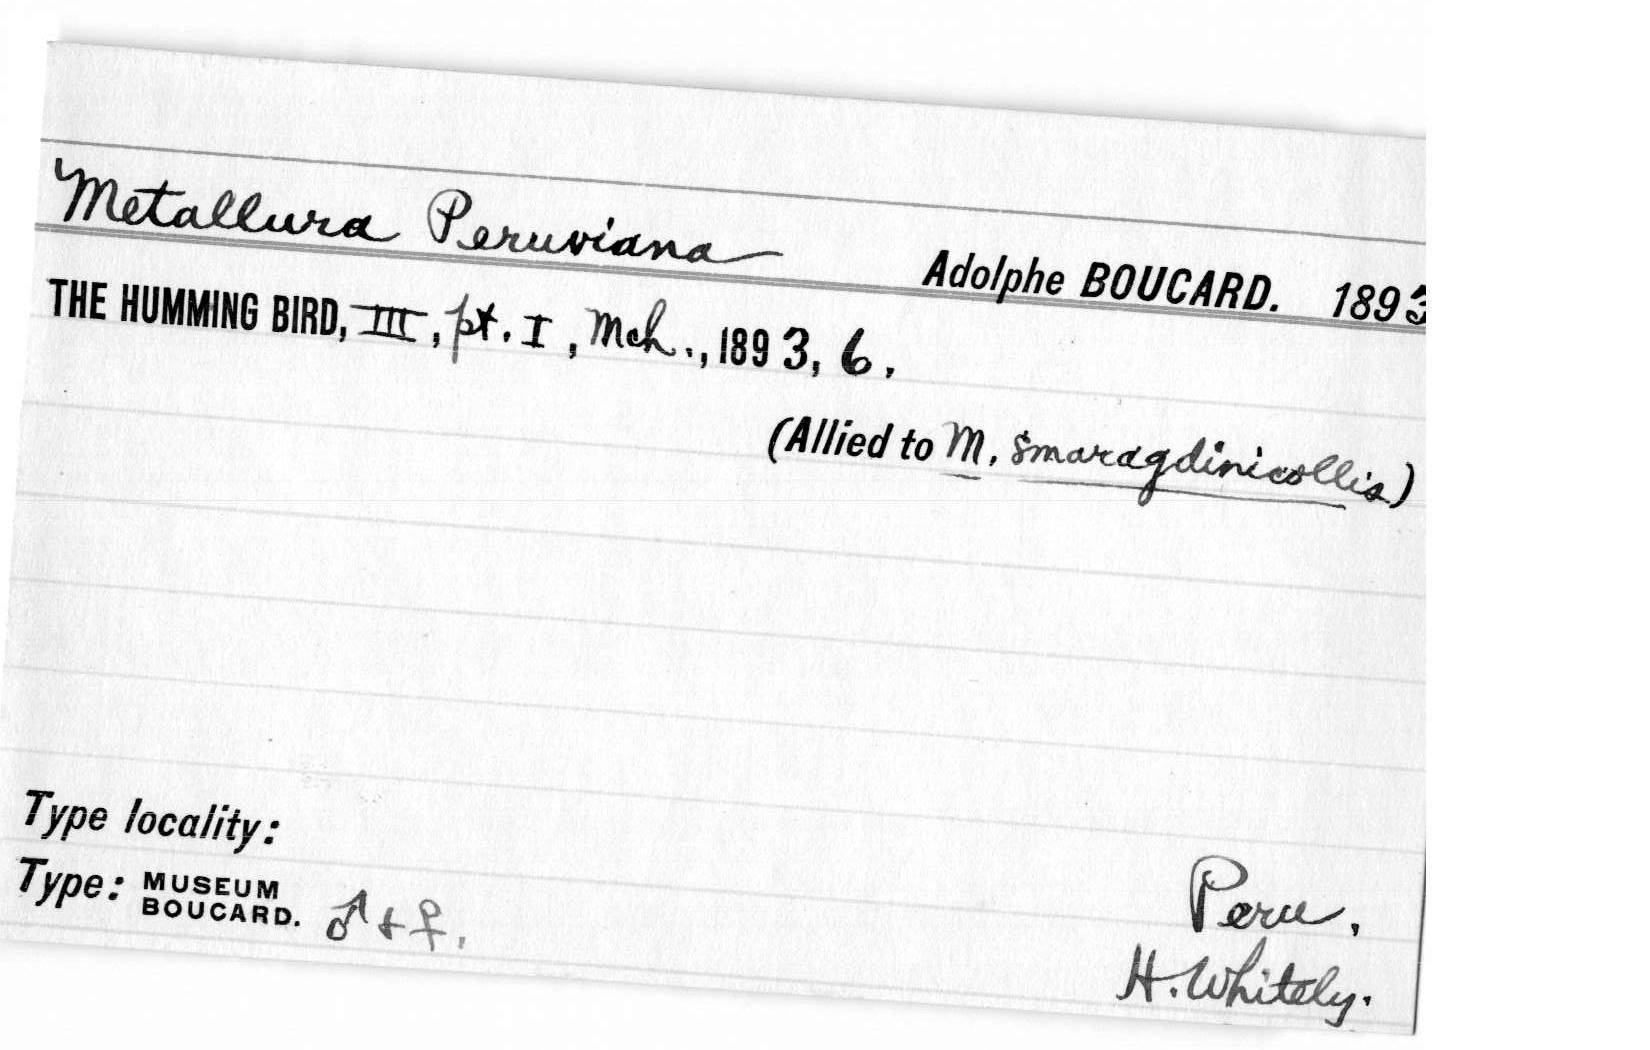 Metallura Peruviana Adolphe BOUCARD. 1893
THE HUMMING BIRD, III, pt. I, Mch., 1893, 6.
(Allied to M. smaragdinicollis)
Type locality:
Peru,
Type: MUSEUM BOUCARD. ♂ + ♀,
H. Whitely.